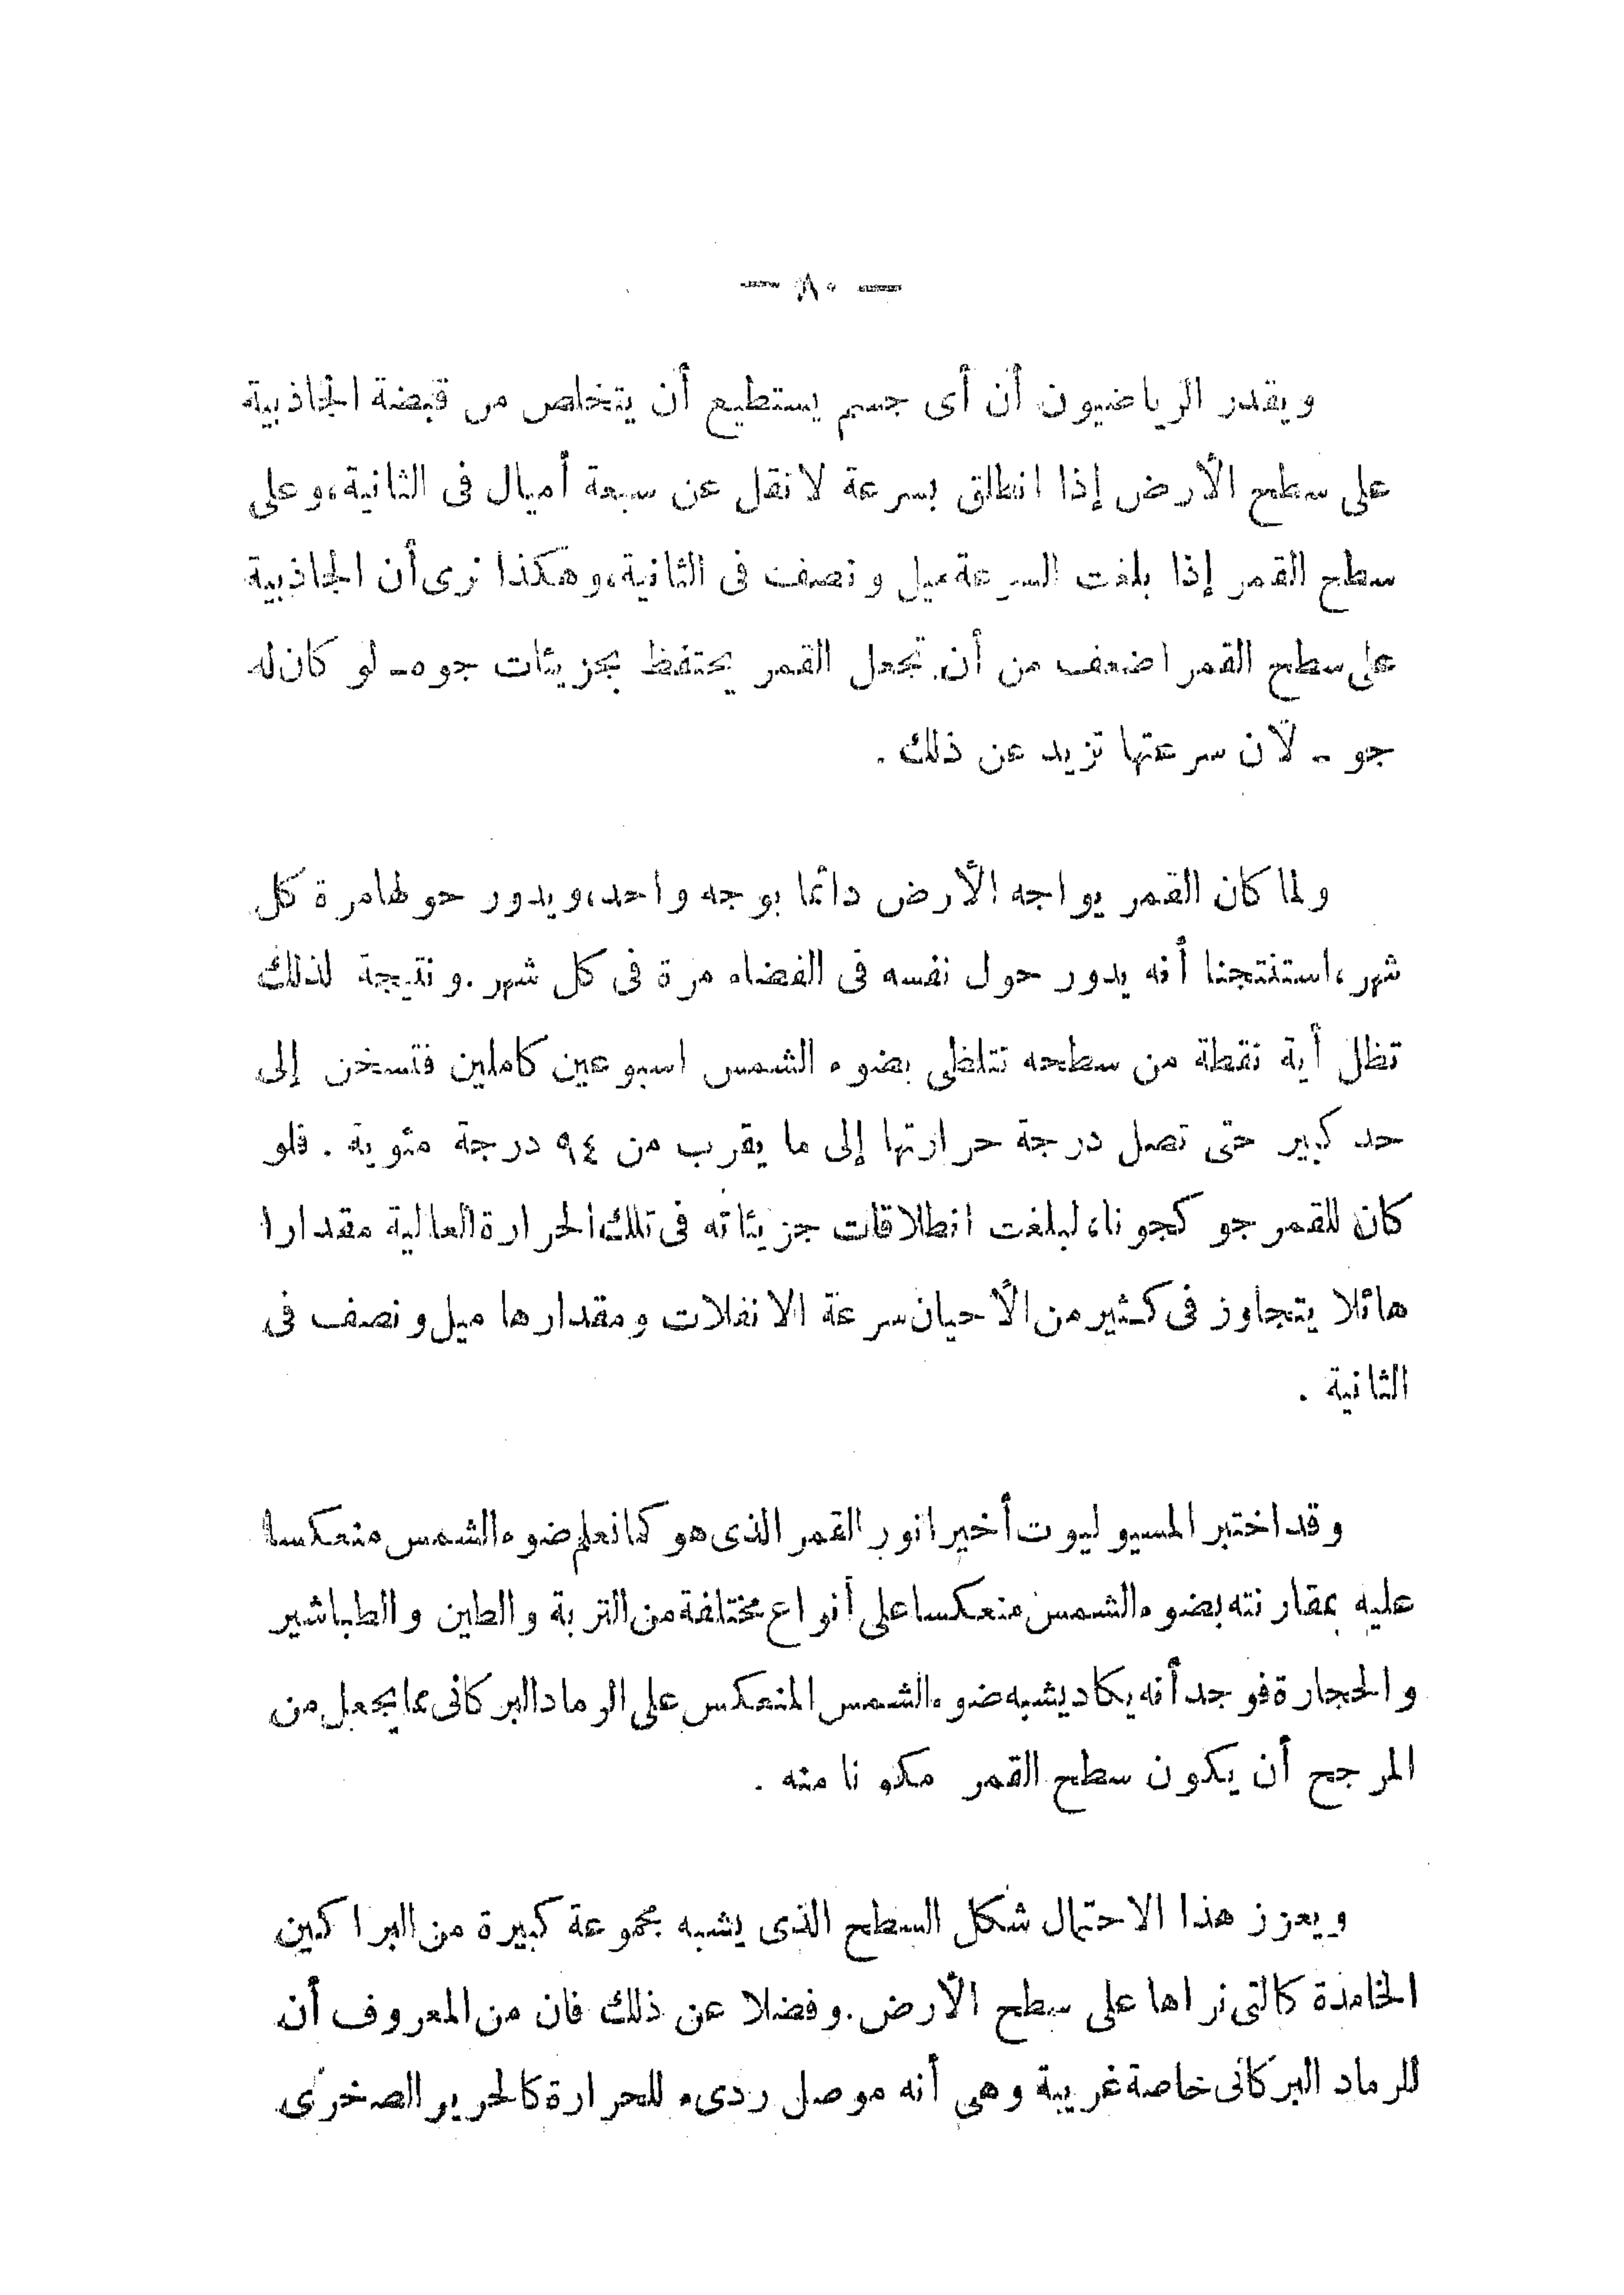 — ٨٠ —
ويقدر الرياضيون أن أى جسم يستطيع أن يتخلص من قبضة الجاذبية
على سطح الأرض إذا انطلق بسرعة لا تقل عن سبعة أميال فى الثانية، وعلى
سطح القمر إذا بلغت السرعة ميل ونصف فى الثانية، وهكذا نرى أن الجاذبية
على سطح القمر اضعف من أن تجعل القمر يحتفظ بجزيئات جوه - لو كان له
جو - لأن سرعتها تزيد عن ذلك .
ولما كان القمر يواجه الأرض دائما بوجه واحد، ويدور حولها مرة كل
شهر، استنتجنا أنه يدور حول نفسه فى الفضاء مرة فى كل شهر . ونتيجة لذلك
تظل أية نقطة من سطحه تتلظى بضوء الشمس اسبوعين كاملين فتسخن إلى
حد كبير حتى تصل درجة حرارتها إلى ما يقرب من ٩٤ درجة مئوية . فلو
كان للقمر جو كجونا، لبلغت انطلاقات جزيئاته فى تلك الحرارة العالية مقدارا
هائلا يتجاوز فى كثير من الأحيان سرعة الانفلات ومقدارها ميل ونصف فى
الثانية .
وقد اختبر المسيو ليوت أخيرا نور القمر الذى هو كما نعلم ضوء الشمس منعكسا
عليه بمقارنته بضوء الشمس منعكسا على أنواع مختلفة من التربة والطين والطباشير
والحجارة فوجد أنه يكاد يشبه ضوء الشمس المنعكس على الرماد البركانى مما يجعل من
المرجح أن يكون سطح القمر مكونا منه .
ويعزز هذا الاحتمال شكل السطح الذى يشبه مجموعة كبيرة من البراكين
الخامدة كالتى نراها على سطح الأرض . وفضلا عن ذلك فان من المعروف أن
للرماد البركانى خاصة غريبة وهى أنه موصل ردىء للحرارة كالحرير الصخرى